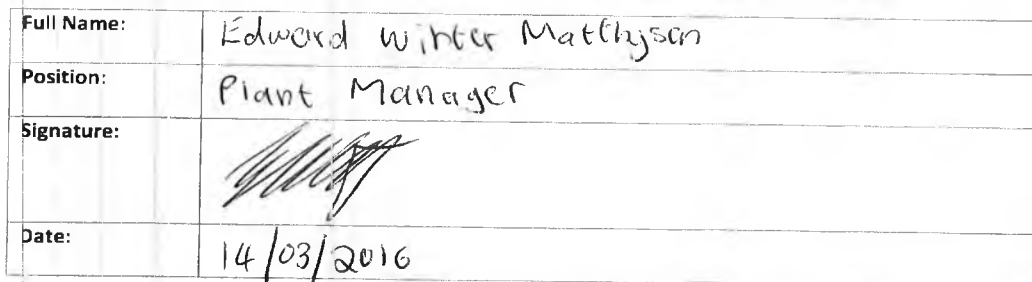 Full Name: Edward Winter Matthysen
Position: Plant Manager
Signature:
Date: 14/03/2016